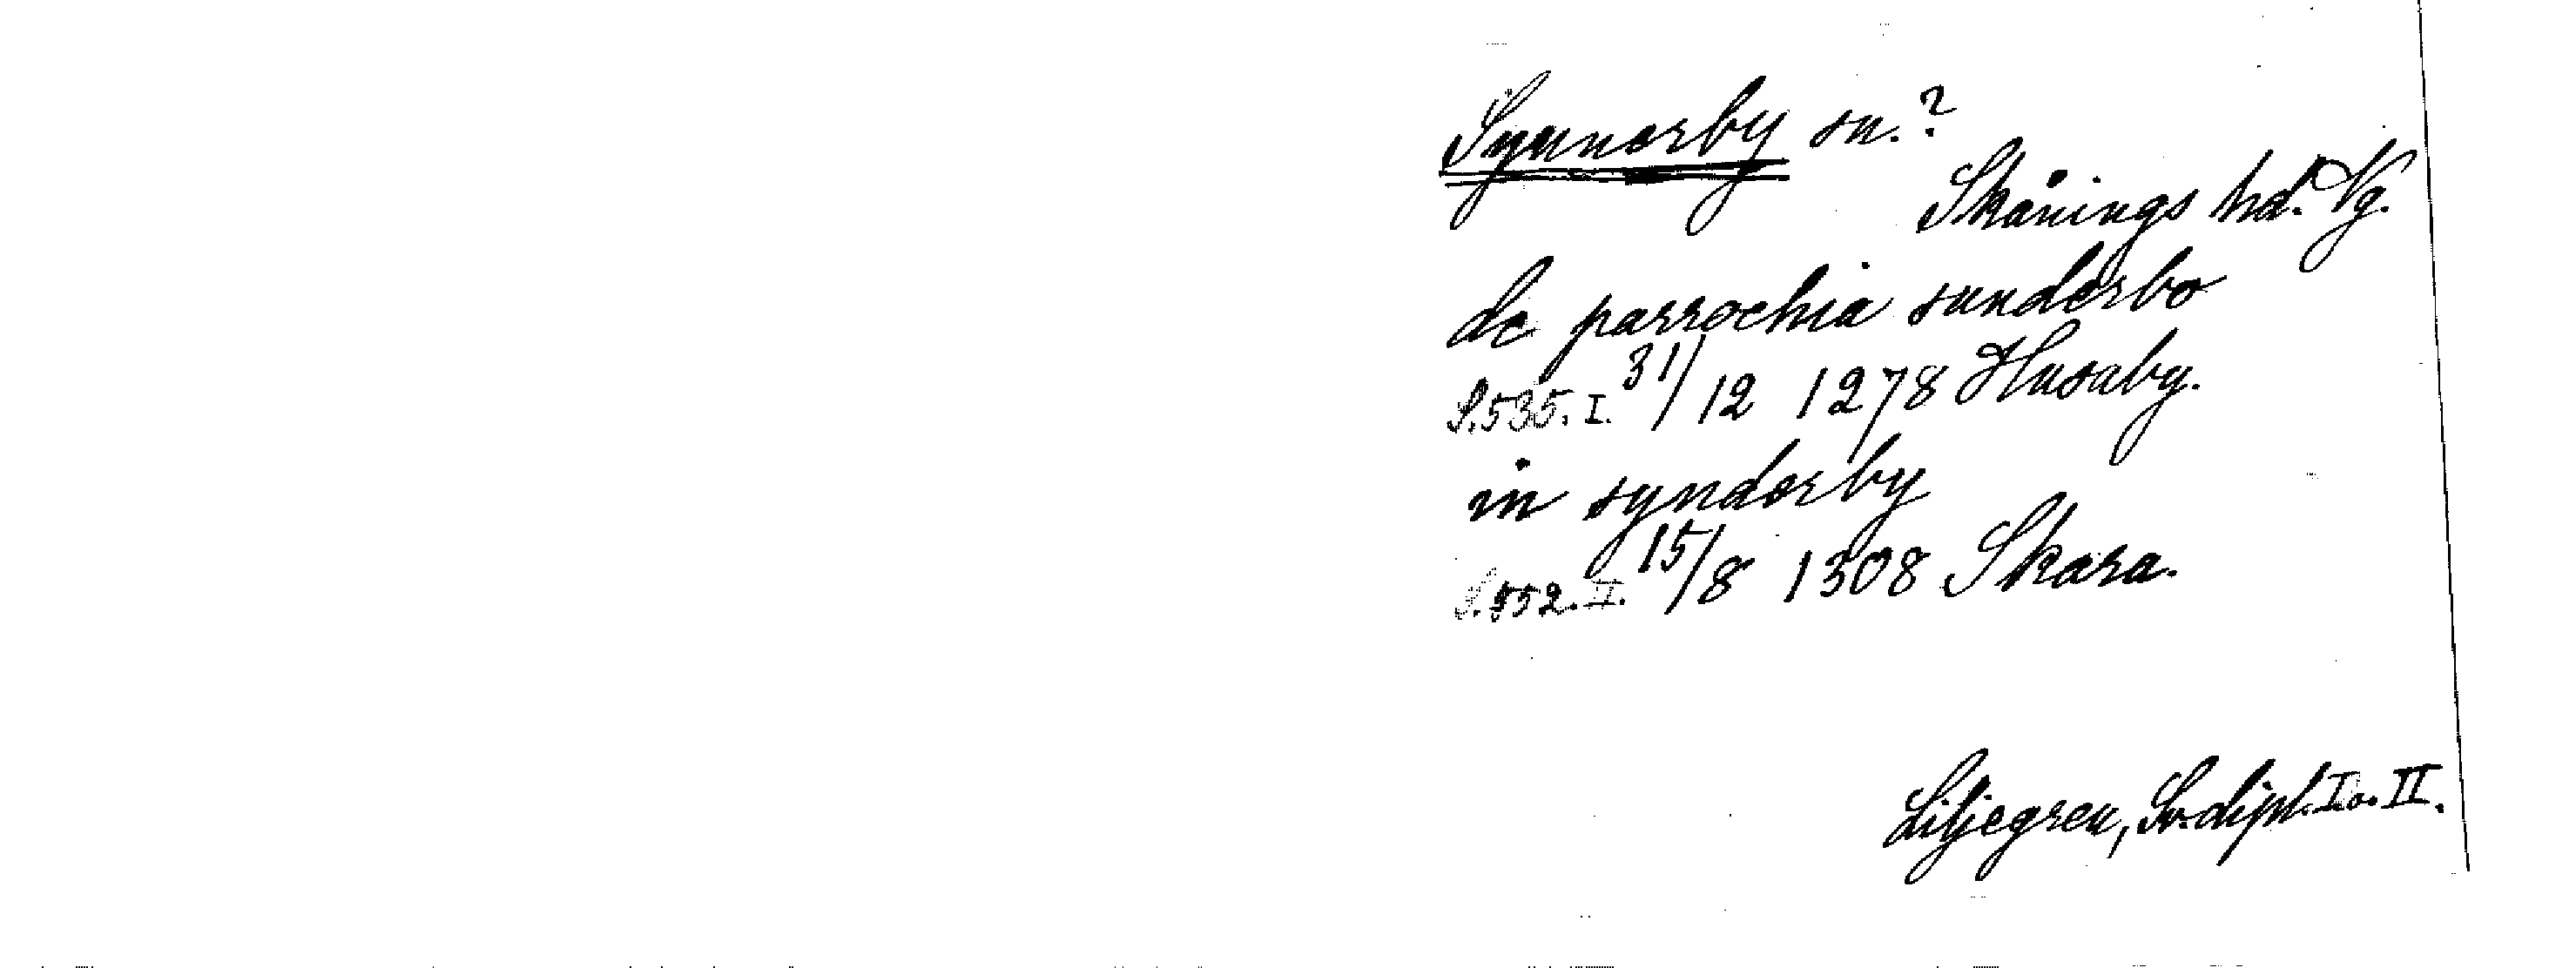 Synnerby sn.?
Skånings hd. Vg.
de parrochia sunderbo
S.535.I. 31/12 1278 Husaby.
in synderby
S.552.II. 15/8 1308 Skara.
Liljegren, Sv. dipl. I o. II.